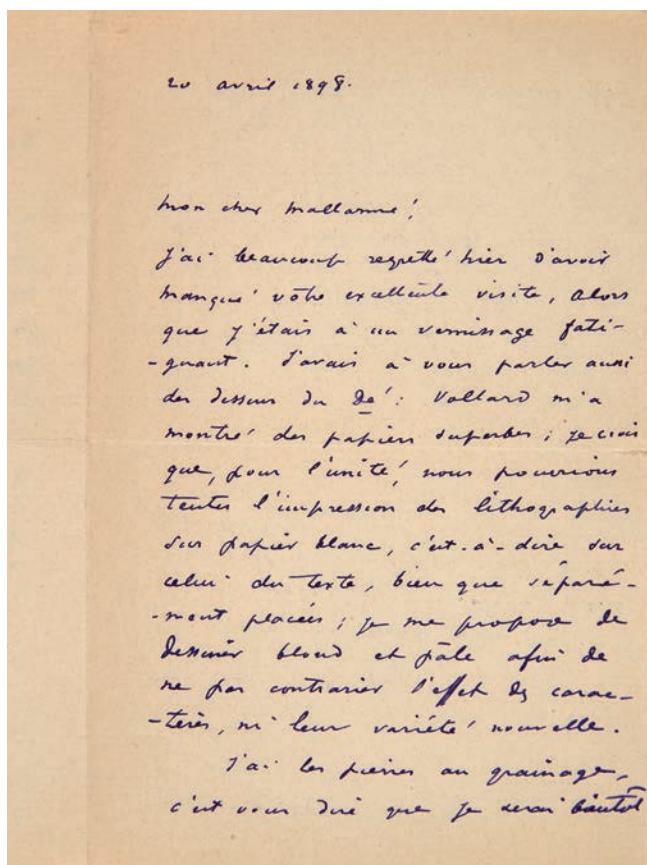 20 avril 1898.
Mon cher Mallarmé,
J'ai beaucoup regretté hier d'avoir
manqué votre excellente visite, alors
que j'étais à un vernissage fati-
-guant. J'avais à vous parler aussi
des dessins du Dé : Vollard m'a
montré des papiers superbes ; je crois
que, pour l'unité, nous pourrions
tenter l'impression des lithographies
sur papier blanc, c'est-à-dire sur
celui du texte, bien que séparé-
-ment placées ; je me propose de
dessiner blond et pâle afin de
ne pas contrarier l'effet des carac-
-tères, ni leur variété nouvelle.
J'ai les pierres au grainage,
c'est vous dire que je serai bientôt